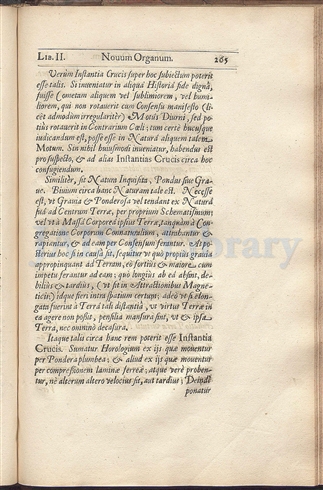 LIB. II. Nouum Organum. 265
Verùm Instantia Crucis super hoc subiectum poterit
esse talis. Si inueniatur in aliquâ Historiâ fide dignâ,
fuisse Cometam aliquem vel sublimiorem, vel humi-
liorem, qui non rotauerit cum Consensu manifesto (li-
cèt admodùm irregularitèr) Motus Diurni, sed po-
tiùs rotauerit in Contrarium Cœli; tum certè hucusque
iudicandum est, posse esse in Naturâ aliquem talem
Motum. Sin nihil huiusmodi inueniatur, habendus est
pro suspecto, & ad alias Instantias Crucis circa hoc
confugiendum.
Similitèr, sit Natura Inquisita, Pondus siue Gra-
ue. Biuium circa hanc Naturam tale est. Necesse
est, vt Grauia & Ponderosa vel tendant ex Naturâ
suâ ad Centrum Terræ, per proprium Schematismum;
vel vt à Massâ Corporeâ ipsius Terræ, tanquam à Con-
gregatione Corporum Connaturalium, attrahantur &
rapiantur, & ad eam per Consensum ferantur. At po-
sterius hoc si in causâ sit, sequitur vt quò propiùs grauia
appropinquant ad Terram, eò fortiùs & maiore cum
impetu ferantur ad eam; quò longiùs ab eâ absint, de-
biliùs & tardiùs, (vt fit in Attractionibus Magne-
ticis) idque fieri intra spatium certum; adeò vt si elon-
gata fuerint à Terrâ tali distantiâ, vt virtus Terræ in
ea agere non possit, pensilia mansura sint, vt & ipsa
Terra, nec omninò decasura.
Itaque talis circa hanc rem poterit esse Instantia
Crucis. Sumatur Horologium ex ijs quæ mouentur
per Pondera plumbea; & aliud ex ijs quæ mouentur
per compressionem laminæ ferreæ; atque verè proben-
tur, nè alterum altero velocius sit, aut tardius; Deindè
ponatur
Library